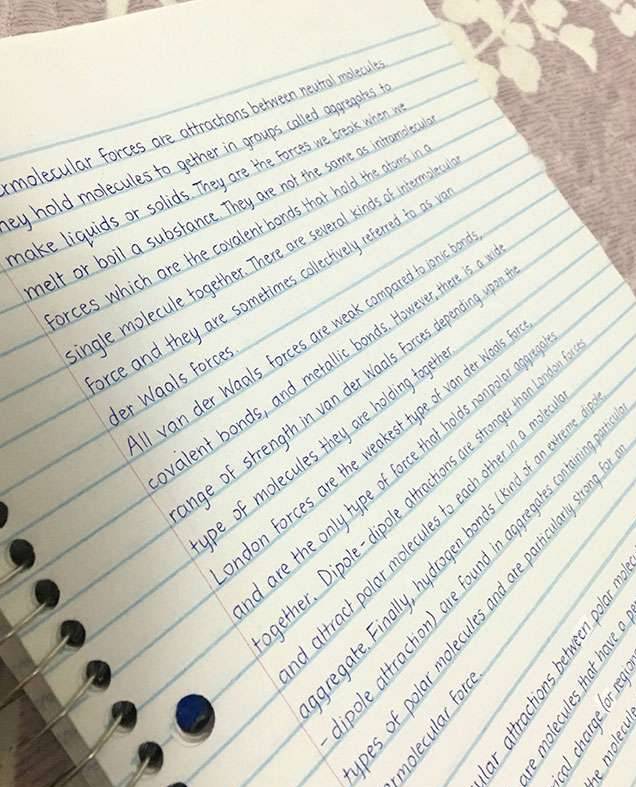 rmolecular forces are attractions between neutral molecules
hey hold molecules to gether in groups called aggregates to
make liquids or solids. They are the forces we break when we
melt or boil a substance. They are not the same as intramolecular
forces which are the covalent bonds that hold the atoms in a
single molecule together. There are several kinds of intermolecular
force and they are sometimes collectively referred to as van
der Waals forces.
All van der Waals forces are weak compared to ionic bonds,
covalent bonds, and metallic bonds. However, there is a wide
range of strength in van der Waals forces depending upon the
type of molecules they are holding together.
London forces are the weakest type of van der Waals force,
and are the only type of force that holds nonpolar aggregates
together. Dipole-dipole attractions are stronger than London forces
and attract polar molecules to each other in a molecular
aggregate. Finally, hydrogen bonds (kind of an extreme dipole
-dipole attraction) are found in aggregates containing particular
types of polar molecules and are particularly strong for an
rmolecular force.
ular attractions between polar molecu
are molecules that have a pe
ical charge (or region
the molecul